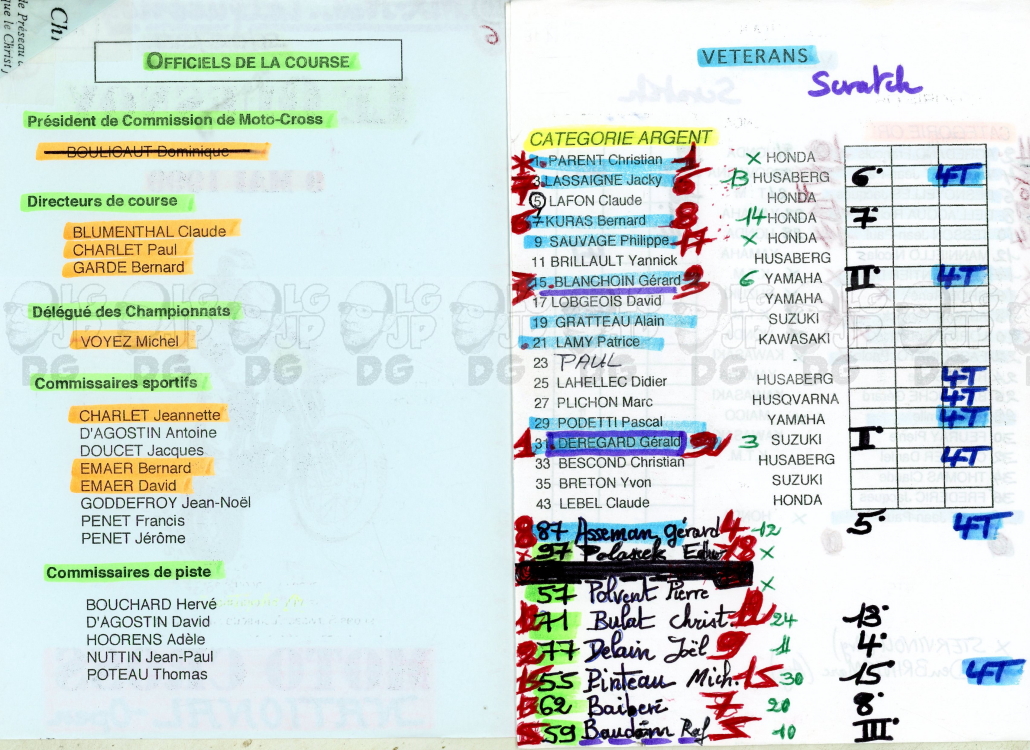 Ch
de Préseau
que le Christ,
OFFICIELS DE LA COURSE
Président de Commission de Moto-Cross
BOULIGAUT Dominique
Directeurs de course
BLUMENTHAL Claude
CHARLET Paul
GARDE Bernard
Délégué des Championnats
VOYEZ Michel
Commissaires sportifs
CHARLET Jeannette
D'AGOSTIN Antoine
DOUCET Jacques
EMAER Bernard
EMAER David
GODDEFROY Jean-Noël
PENET Francis
PENET Jérôme
Commissaires de piste
BOUCHARD Hervé
D'AGOSTIN David
HOORENS Adèle
NUTTIN Jean-Paul
POTEAU Thomas
VETERANS
Scratch
CATEGORIE ARGENT
1. PARENT Christian 1 × HONDA
3. LASSAIGNE Jacky 6 13 HUSABERG 6. 4T
5 LAFON Claude HONDA
7 KURAS Bernard 8 14 HONDA 7.
9 SAUVAGE Philippe 17 × HONDA
11 BRILLAULT Yannick HUSABERG
15. BLANCHOIN Gérard 6 YAMAHA II. 4T
17 LOBGEOIS David YAMAHA
19 GRATTEAU Alain SUZUKI
21 LAMY Patrice KAWASAKI
23 PAUL
25 LAHELLEC Didier HUSABERG 4T
27 PLICHON Marc HUSQVARNA 4T
29 PODETTI Pascal YAMAHA 4T
1 31 DEREGARD Gérald 3 SUZUKI I.
33 BESCOND Christian HUSABERG 4T
35 BRETON Yvon SUZUKI
43 LEBEL Claude HONDA
8 87 Asseman Gérard 4 12 5. 4T
97 Polasiek 18 ×
57 Polvent Pierre ×
71 Bulat Christ. 24 13.
77 Delain Joël 9 11 4.
55 Pinteau Mich. 15 30 15 4T
62 Baiberi 7 20 8.
59 Baudoin Raf 5 10 III.
DG
JP
DG